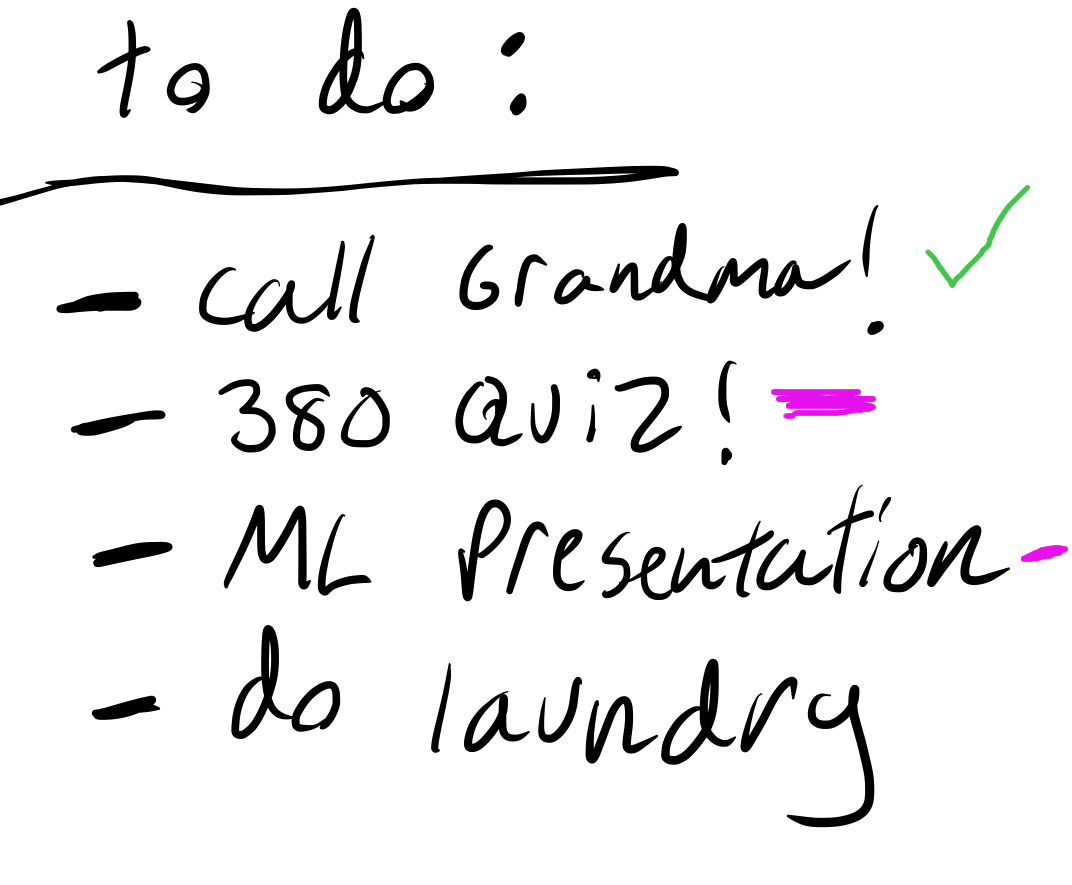 to do:
- Call Grandma! ✓
- 380 Quiz! -
- ML Presentation -
- do laundry